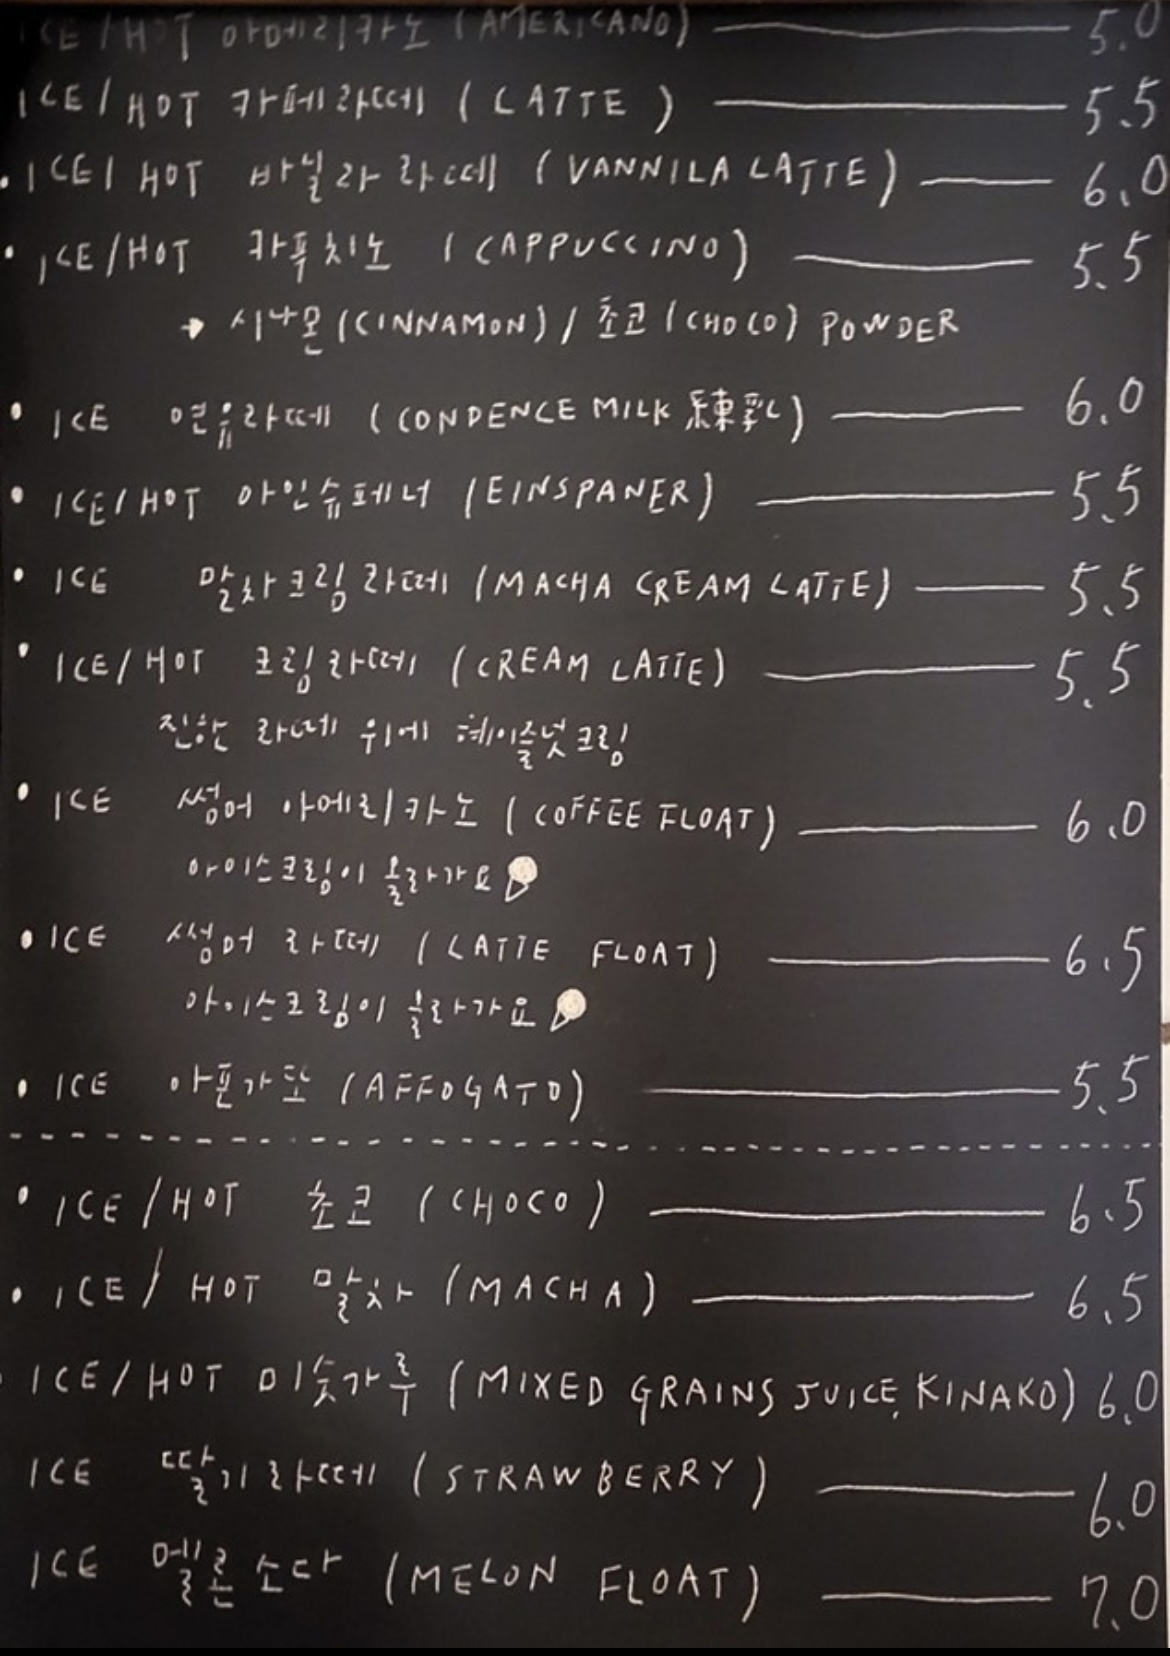 ICE/HOT 아메리카노 (AMERICANO) 5.0
ICE/HOT 카페라떼 (LATTE) 5.5
• ICE/HOT 바닐라 라떼 (VANNILA LATTE) 6.0
• ICE/HOT 카푸치노 (CAPPUCCINO) 5.5
→ 시나몬 (CINNAMON) / 초코 (CHOCO) POWDER
• ICE 연유라떼 (CONDENCE MILK 練乳) 6.0
• ICE/HOT 아인슈페너 (EINSPANER) 5.5
• ICE 말차크림 라떼 (MACHA CREAM LATTE) 5.5
• ICE/HOT 크림라떼 (CREAM LATTE) 5.5
진한 라떼 위에 헤이즐넛크림
• ICE 썸머 아메리카노 (COFFEE FLOAT) 6.0
아이스크림이 올라가요
• ICE 썸머 라떼 (LATTE FLOAT) 6.5
아이스크림이 올라가요
• ICE 아폳가또 (AFFOGATO) 5.5
• ICE/HOT 초코 (CHOCO) 6.5
• ICE/HOT 말차 (MACHA) 6.5
• ICE/HOT 미숫가루 (MIXED GRAINS JUICE, KINAKO) 6.0
ICE 딸기라떼 (STRAWBERRY) 6.0
ICE 멜론소다 (MELON FLOAT) 7.0